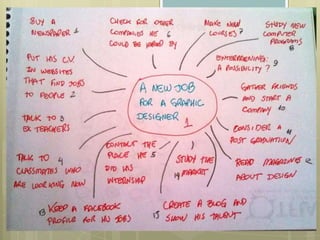 BUY A
NEWSPAPER 1
CHECK FOR OTHER
COMPANIES HE 6
COULD BE HIRED BY
MAKE NEW
COURSES 7
STUDY NEW
COMPUTER
PROGRAMS
8
PUT HIS C.V.
IN WEBSITES
THAT FIND JOBS
TO PEOPLE 2
ENTERPRENING:
A POSSIBILITY? 9
A NEW JOB
FOR A GRAPHIC
DESIGNER
1
GATHER FRIENDS
AND START A
COMPANY 10
TALK TO 3
EX TEACHERS
CONSIDER A 11
POST GRADUATION
CONTACT THE
PLACE HE 5
DID HIS
INTERNSHIP
STUDY THE
14 MARKET
READ MAGAZINES 12
ABOUT DESIGN
TALK TO 4
CLASSMATES WHO
ARE LOOKING NOW
13 KEEP A FACEBOOK
PROFILE FOR HIS JOBS
15 CREATE A BLOG AND
SHOW HIS TALENT